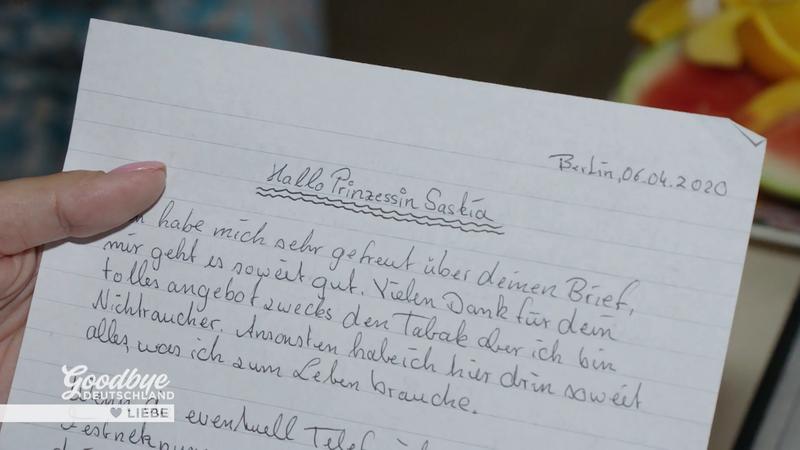 Berlin, 06.04.2020
Hallo Prinzessin Saskia
habe mich sehr gefreut über deinen Brief,
mir geht es soweit gut. Vielen Dank für dein
tolles angebot zwecks den Tabak aber ich bin
Nichtraucher. Ansonsten habe ich hier drin soweit
alles, was ich zum Leben brauche.
eventuell
Goodbye
DEUTSCHLAND
LIEBE